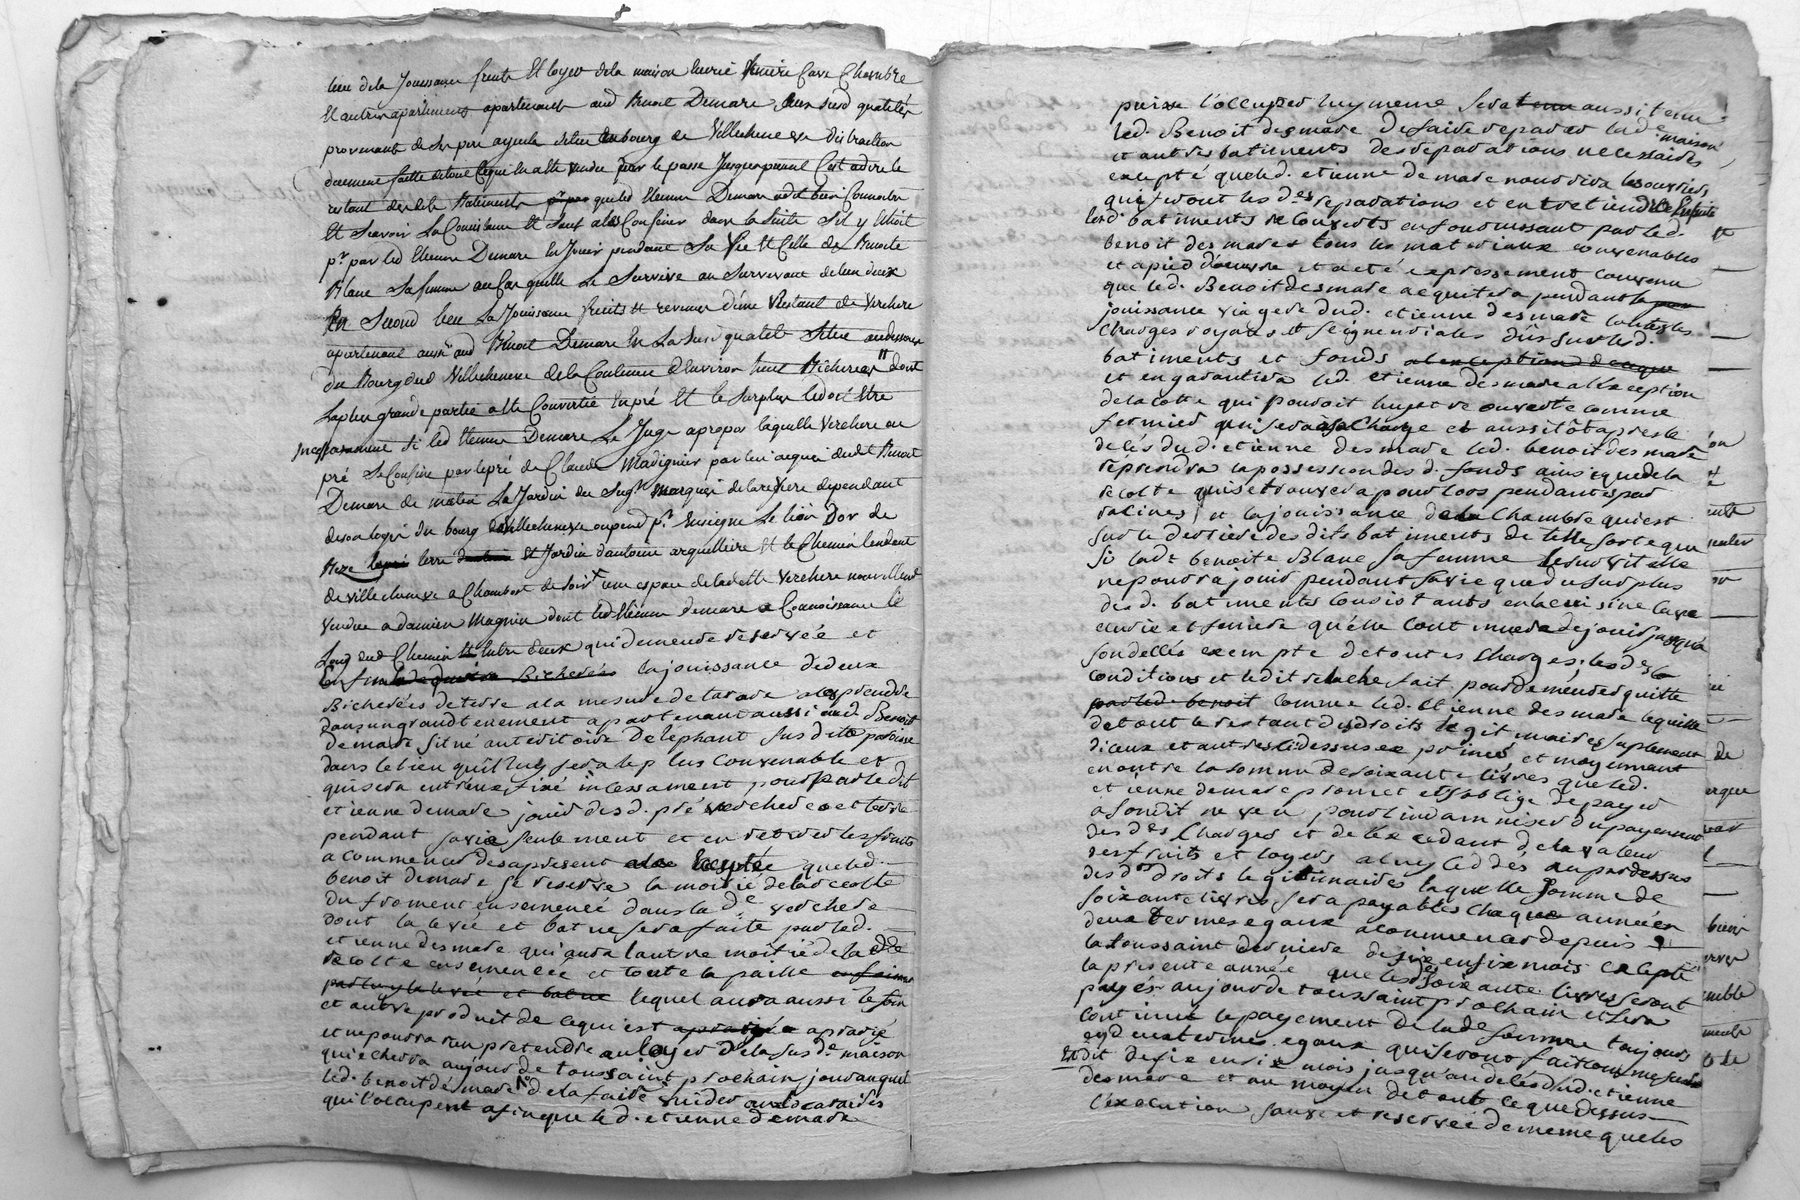 lieu de la Jouissance fruits Et loyer dela maison Ecurie feniere Cave Chambre
Et autres apartements apartenants aud Benoit Demare Aux susd qualités
provenants de son pere ayeule situé au bourg de Villecheneve distraction
duement faitte de tout cequi a Eté vendu par le passé Jusquapresent Cest adire le
restant desdits Batiments que led Etienne Demare adit bien Connaitre
Et Scavoir La Consistance Et Sauf ales Confiner dans la Suitte Sil y Echoit
pr par led Etienne Demare En Jouir pendant Sa Vie Et Celle de Benoite
Blanc Sa femme au Cas quelle Le Survive au Survivant de les deux
En Second lieu La Jouissance fruits Et revenus d'une Restant de Verchere
apartenant aussy aud Benoit Demare En La Susd qualité Située audessous
du Bourg dud Villecheneve de la Contenue d'Environ huit Bicherées dont
La plus grande partie a Eté Convertie En pré Et le Surplus le doit Etre
incessamment Si led Etienne Demare Le Juge apropos laquelle Verchere ou
pré Se Confine par le pré de Claude Madignier par lui acquis dudt Benoit
Demare de matin Le Jardin du Sugr Marquis de la dependant
de son logis du bourg de Villecheneve ou pend pr Enseigne Le lion Dor de
Bize terre Et Jardin d'antoine arquilliere Et le Chemin tendant
de Villecheneve a Chambost de Soir une espace de ladette Verchere nouvellemt
Vendue a damien Magnin dont led Etienne demare a Connoissance le
Long dud Chemin Entre deux qui demeure reservée et
Enfin la jouissance de deux
Bicherées de terre a la mesure de tarare a les prendre
dans un grand tenement apartenant aussi aud Benoit
demare situé au territoire De lephant susdite paroisse
dans le lieu qu'il luy sera le plus convenable et
qui sera entreux fixé incessament, pour par ledit
etienne demare jouir desd. pré verchere et terre
pendant sa vie seulement et en retirer les fruits
a commencer des apresent excepté que led.
benoit demare se reserve la moitié de la recolte
du froment ensemencé dans la de verchere
dont la levée et batue sera faite par led.
etienne desmare qui aura lautre moitié de la dte
recolte ensemencée et toute la paille
lequel aura aussi le foin
et autre produit de cequi est apradié
et ne poura rien pretendre au loyer de la susde maison
qui echerra au jour de toussaint prochain jour auquel
led. benoit demare de la faire vuider aux locataires
qui l'occupent afin que led. etienne demare
puisse l'occuper luy meme sera aussi tenu
led. Benoit desmare de faire reparer lade maison
et autres batiments des reparations necessaires
excepté que led. etienne demare nourrira les ouvriers
qui feront les des reparations et entretiendra Ensuite
lesd. batiments de couverts en fournissant par led.
benoit desmare tous les materiaux convenables
et apied d'oeuvre et a eté expressement convenu
que led. Benoit desmare acquitera pendant la
jouissance viagere dud. etienne desmare toutes les
charges royales et seigneuriales dûs sur led.
batiments et fonds
et en garantira led. etienne desmare a l'exception
de la cotte qui pouroit luy etre ouverte comme
fermier qui sera a sa charge et aussitôt apres le
deces dud. etienne desmare led. benoit desmare
reprendra la possession desd. fonds ainsi que de la
recolte qui se trouvera pour lors pendantes par
racines, et la jouissance de la chambre qui est
sur le derriere des dits batiments de telle sorte que
si ladt benoite Blanc sa femme le survit elle
ne poura jouir pendant sa vie que du surplus
desd. batiments consistants en la cuisine cave
ecurie et feniere qu'elle continuera de jouir jusqu'a
son deces exempte de toutes charges; lesdes
conditions et ledit relache fait pour demeurer quitte
comme led. Etienne desmare le quitte
de tout le restant des droits legitimaires suplement
diceux et autres cidessus exprimés et moyennant
en outre la somme de soixante livres que led.
etienne demare promet et s'oblige de payer
a sondit neveu pour lindamniser du payement
des des charges et de lexcedant de la valeur
des fruits et loyers a luy ceddés au pardessus
des ds droits legitimaires laquelle somme de
soixante livres sera payables chaque années en
deux termes egaux a commencer depuis
la toussaint derniere de six en six mois excepté
la presente année que lesdes soixante livres seront
payer au jour de toussaint prochain et sera
continué le payement de lade somme toujours
en deux termes egaux qui seront faits
Et dit de six en six mois jusqu'au deces dud. etienne
desmare et au moyen de tout ce que dessus
l'execution sauve et reservée de meme que les